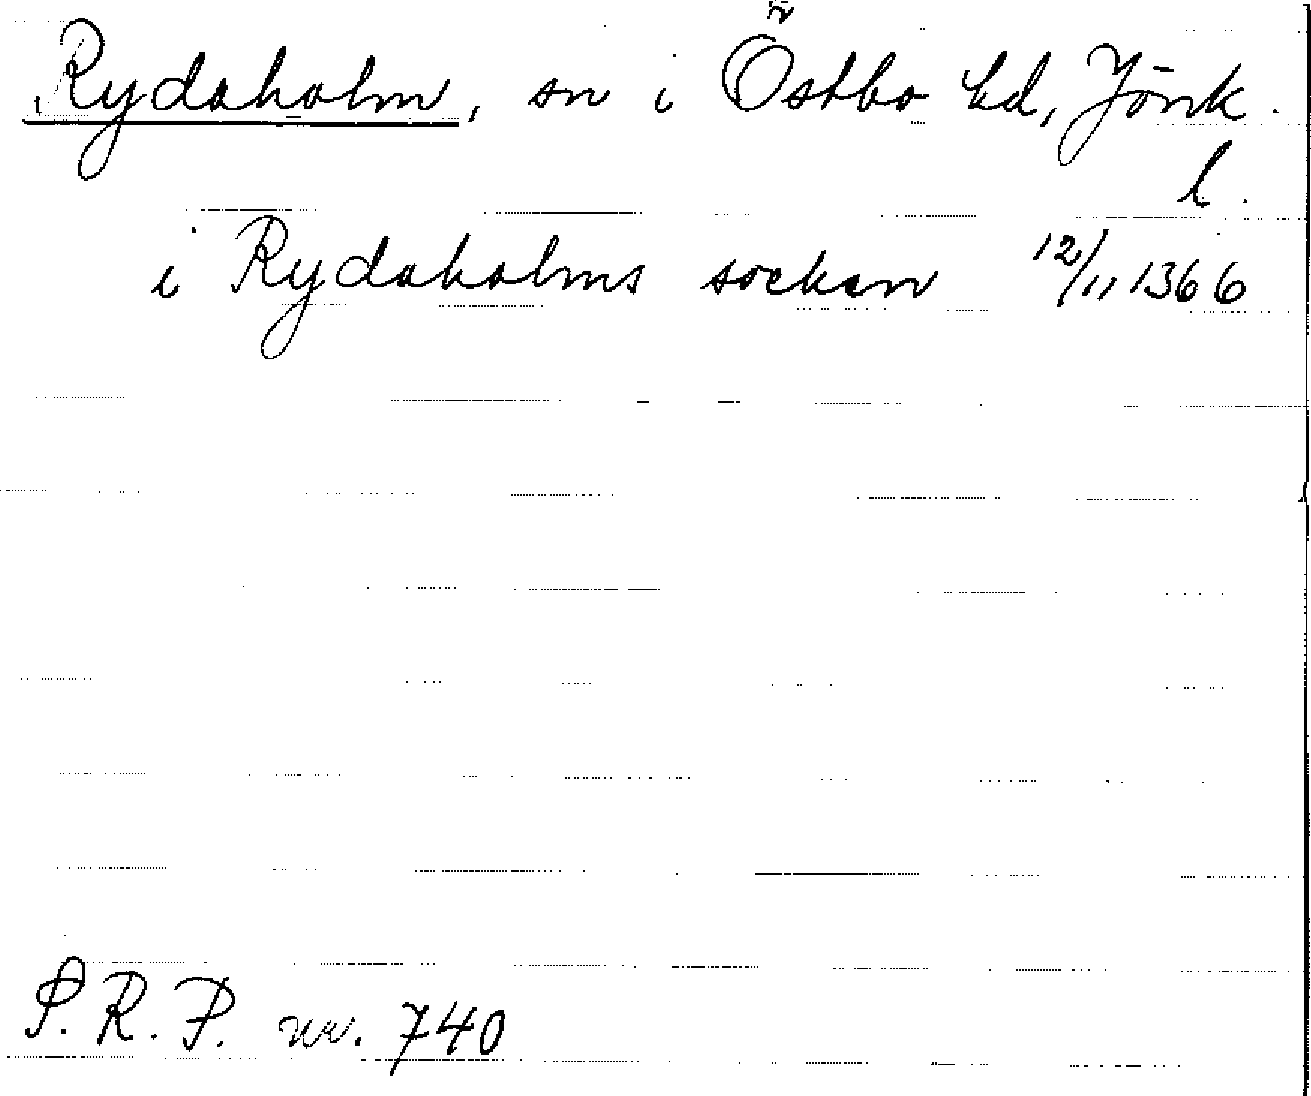 Rydaholm, sn i Östbo hd, Jönk.
l.
i Rydaholms sockan 12/11 1366
S.R.P. nr. 740